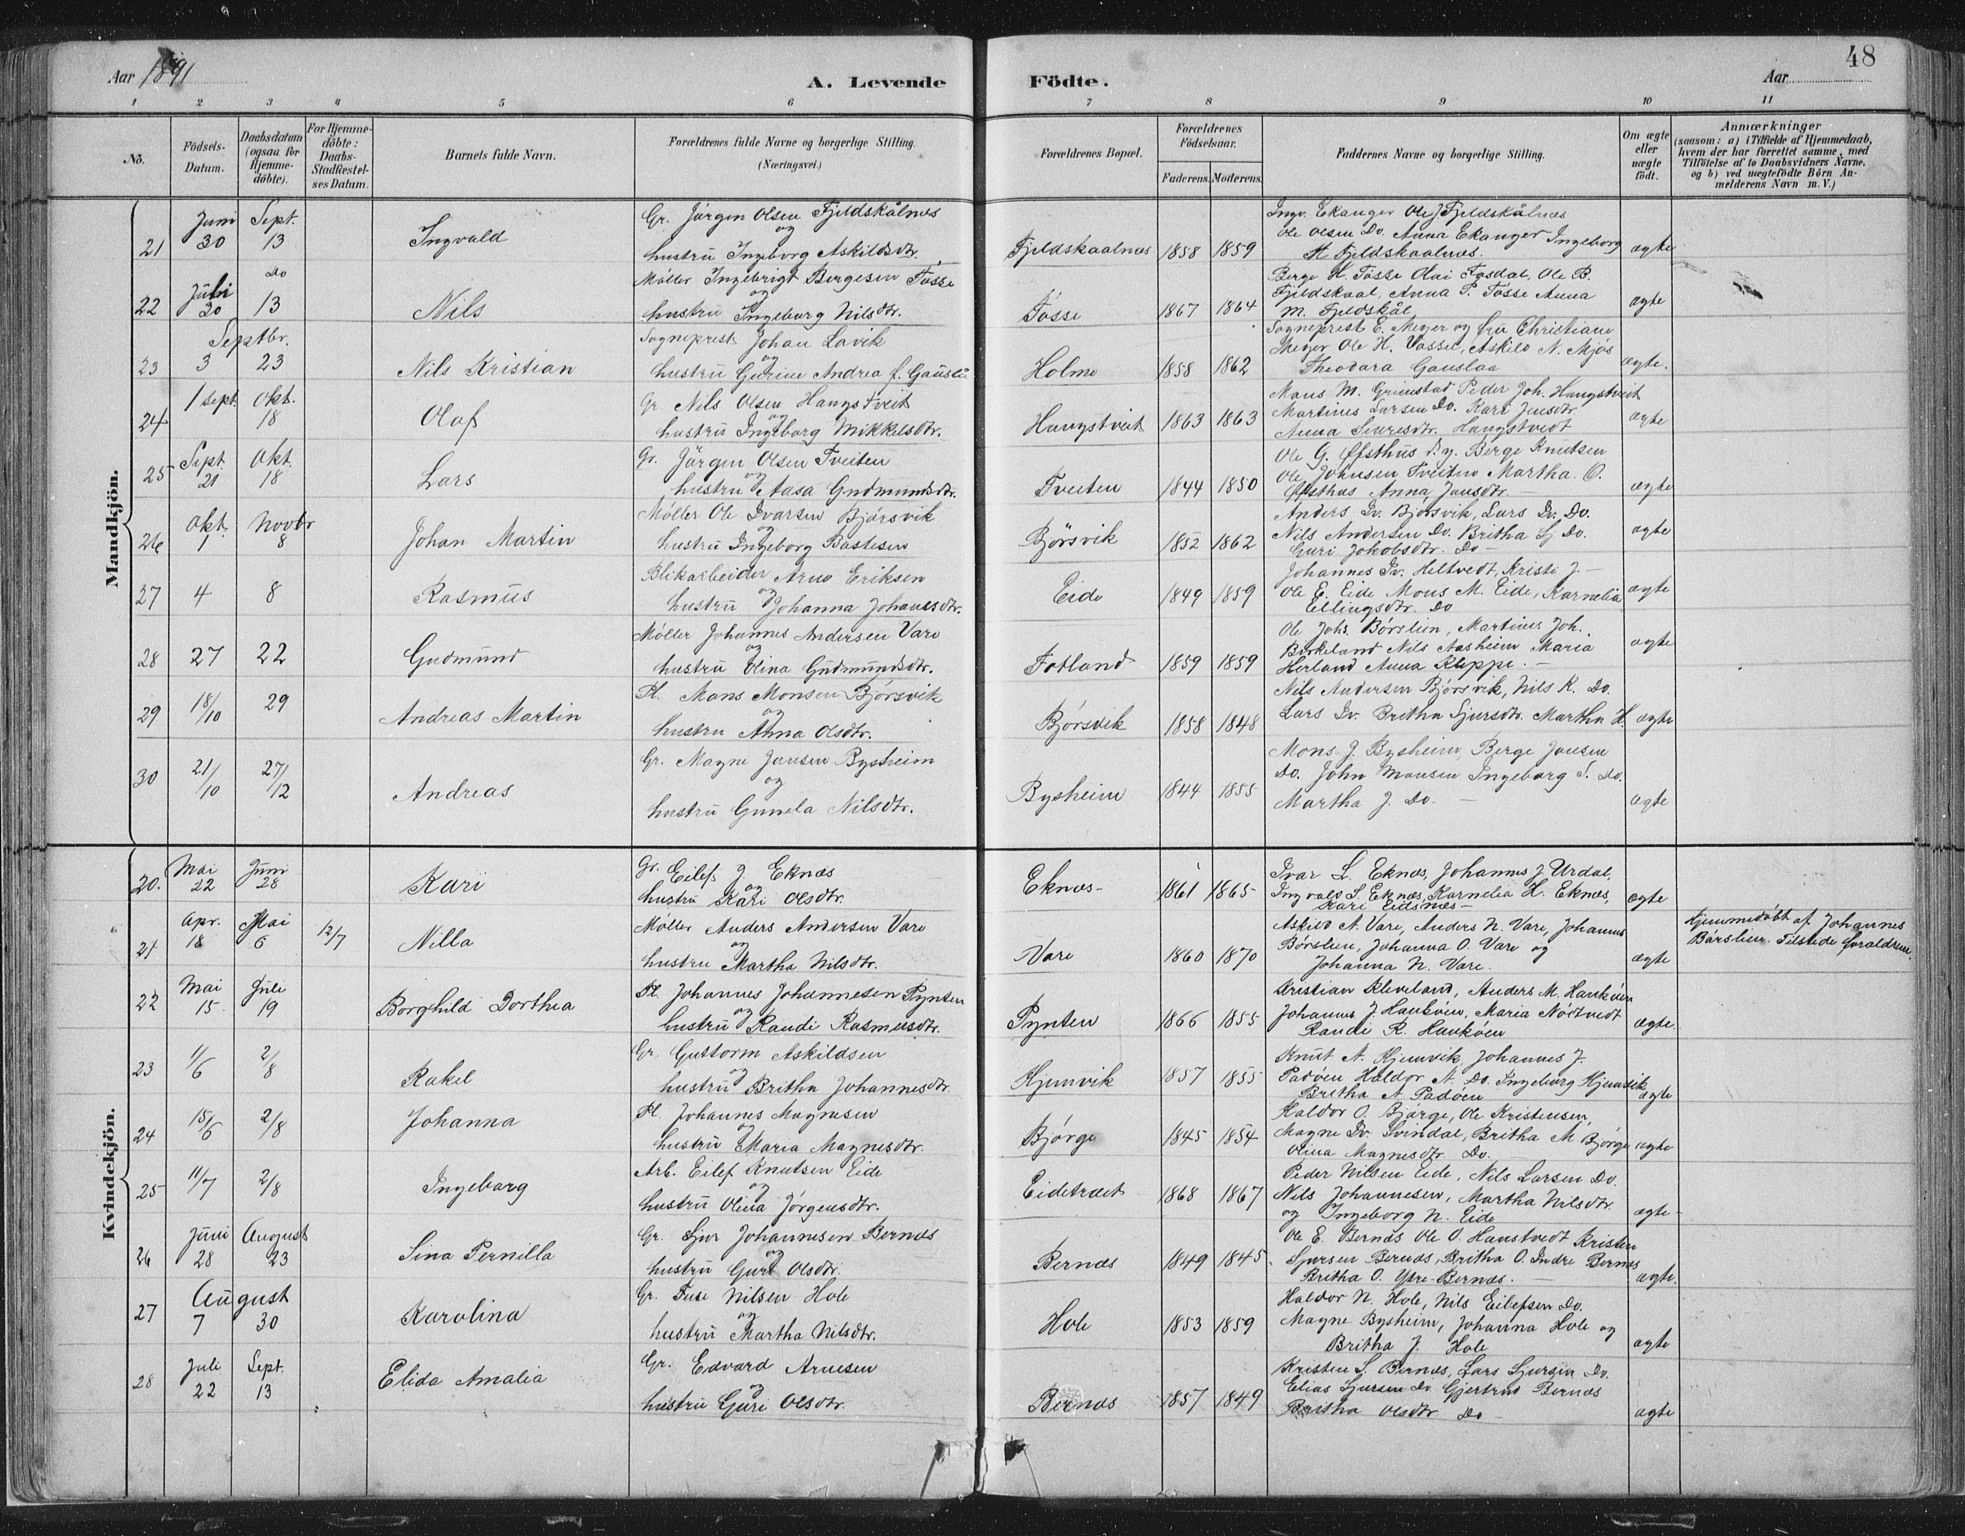 48
Aar 1891
A. Levende Födte.
Aar
1 2 3 4 5 6 7 8 9 10 11
No.
Födsels-Datum.
Daabsdatum (ogsaa for Hjemme-döbte).
For Hjemme-döbte: Daabs-Stadfæstel-ses Datum.
Barnets fulde Navn.
Forældrenes fulde Navne og borgerlige Stilling. (Næringsvei.)
Forældrenes Bopæl.
Forældrenes Födselsaar.
Faderens. Moderens.
Faddernes Navne og borgerlige Stilling.
Om ægte eller uægte födt.
Anmærkninger
(saasom: a) i Tilfælde af Hjemmedaab, hvem der har forrettet samme, med Tilföielse af to Daabsvidners Navne, og b) ved uægtefödte Börn Anmelderens Navn m. V.)
Mandkjön.
21 Juni 30 Sept. 13 Ingvald Gr. Jörgen Olsen Fjeldskålnes
og
hustru Ingeborg Askildsdtr. Fjeldskaalnes 1858 1859 Ingv. Ekanger Ole J Fjeldskålnes
Ole Olsen Do. Anna Ekanger Ingeborg
H Fjeldskaalnes. ægte
22 Juli 30 Do 13 Nils Møller Ingebrigt Bergesen Fosse
og
hustru Ingeborg Nilsdtr. Fosse 1867 1864 Berge H. Fosse Olai Fosdal, Ole B.
Fjeldskaal, Anna P. Fosse Anna
M. Fjeldskål ægte
23 Septbr. 3 23 Nils Kristian Sogneprest Johan Lavik
og
hustru Gurine Andrea f. Gausla Holme 1858 1862 Sogneprest E. Meyer og fru Christiane
Meyer Ole H. Vasse, Askild N. Mjøs
Theodora Gauslaa ægte.
24 1 Sept. Okt. 18 Olaf Gr. Nils Olsen Hangstveit
og
hustru Ingeborg Mikkelsdtr. Hangstveit 1863 1863 Mons M. Grimstad Peder Joh. Hangstveit
Martinus Larsen Do. Kari Jensdtr.
Anna Hangstvedt ægte
25 Sept 21 Okt. 18 Lars Gr. Jörgen Olsen Tveiten
og
hustru Aasa Gudmundsdtr. Tveiten 1844 1850 Ole G. Øfsthus Berge Knutsen
Ole Johnsen Tveiten Martha O.
Øfsthus Anna Jonsdtr. ægte
26 Okt. 1 Novbr 8 Johan Martin Møller Ole Ivarsen Bjórsvik
og
hustru Ingeborg Bastesen Bjørsvik 1852 1862 Anders Iv. Bjorsvik, Lars Iv. Do.
Nils Andersen Do. Britha Sj Do.
Guri Johobsdtr. Do ægte
27 4 8 Rasmus Blikarbeider Arne Eriksen
og
hustru Johanna Johansdtr. Eide 1849 1859 Johannes Iv. Heltvedt, Kristi J.
Ole E. Eide Mons M. Eide, Karnelia
Ellingsdtr. Do ægte
28 27 22 Gudmund Møller Johannes Andersen Vare
og
hustru Olina Gudmundsdtr. Fotland 1859 1859 Ole Johs. Børslien, Martines Joh.
Birkeland Nils Aasheim Maria
Herland Anna Kleppe. ægte
29 18/10 29 Andreas Martin Pl. Mons Monsen Bjørsvik
og
hustru Anna Olsdtr. Bjørsvik 1858 1848 Nils Andersen Bjórsvik, Nils K. Do.
Lars Iv. Britha Sjursdtr. Martha H. ægte
30 21/10 27/12 Andreas Gr. Magne Jansen Bysheim
og
hustru Gunela Nilsdtr. Bysheim 1844 1855 Mons J. Bysheim, Berge Jansen
Do. John Monsen Ingeborg S. Do.
Martha J. Do. ægte
Kvindekjön.
20. Mai 22 Juni 28 Kari Gr. Eilef J. Eknæs
og
hustru Kari Olsdtr. Eknæs 1861 1865 Ivar L. Eknæs, Johannes J. Urdal,
Ingvald S. Eknæs, Karnelia H. Eknæs,
Kari Eidsnæs ægte
21 Apr. 18 Mai 6 12/7 Nilla Møller Anders Andersen Vare
og
hustru Martha Nilsdtr. Vare 1860 1870 Askild A. Vare, Anders N. Vare, Johannes
Børslien, Johanna O. Vare og
Johanna N. Vare. ægte Hjemmedøbt af Johannes
Børslien. Tilstede forældrene.
22 Mai 15 Juli 19 Borghild Dorthea Pl. Johannes Johannesen Pynten
og
hustru Randi Rasmusdtr. Pynten 1866 1855 Kristian Kleveland, Anders M. Haukøen
Johannes J. Haukøen, Maria Nøstvedt
Randi R. Haukøen ægte
23 11/6 2/8 Rakel Gr. Guttorm Askildsen
og
hustru Britha Johannesdtr. Hjemvik 1857 1855 Knut A. Hjemvik Johannes J.
Padøen Haldor A. Do. Ingeborg Hjemvik
Britha A Padøen ægte
24 15/6 2/8 Johanna Pl. Johannes Magnesen
og
hustru Maria Magnesdtr. Bjørge 1845 1854 Haldor O. Bjørge, Ole Kristensen,
Magne Iv. Svindal, Britha M Bjørge
Olina Magnesdtr Do. ægte
25 11/7 2/8 Ingeborg Arb. Eilef Knutsen Eide
og
hustru Olina Jørgensdtr. Eidetræet 1868 1867 Peder Nilsen Eide, Nils Larsen Do.
Nils Johannesen, Martha Nilsdtr
og Ingeborg N. Eide ægte
26 Juni 28 August 23 Sina Pernilla Gr. Sjur Johannesen Bernæs
og
hustru Guri Olsdtr. Bernæs 1849 1845 Ole E. Bernæs Ole O. Hanstvedt Kristen
Sjursen Bernæs, Britha O. Indre Bernæs
Britha O. Ytre-Bernæs. ægte
27 August 7 30 Karolina Gr. Nilsen Hole
og
hustru Martha Nilsdtr. Hole 1853 1859 Haldor N. Hole, Nils Eilefsen Do.
Magne Bysheim, Johanna Hole og
Britha J. Hole ægte
28 Juli 22 Sept. 13 Elida Amalia Gr. Edvard Arnesen
og
hustru Guri Olsdtr. Bernæs 1857 1849 Kristen S. Bernæs, Lars Sjursen Do.
Elias Sjursen Do Gjertrud Bernæs
Britha Olsdtr. Do ægte